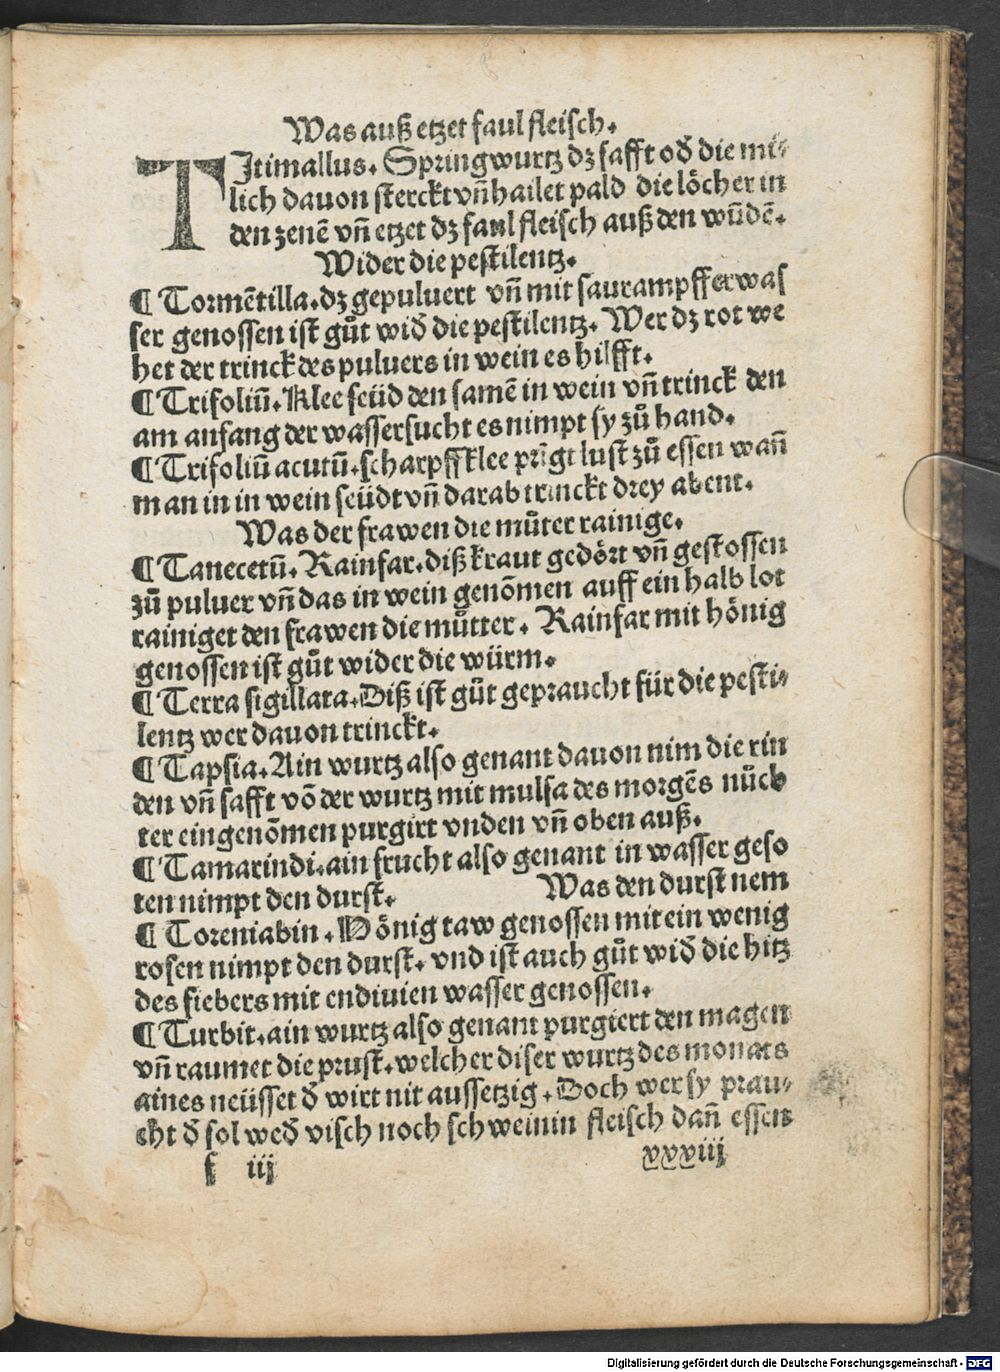 Was auß etzet faul fleisch.
TJtimallus. Springwurtz dz safft od̄ die mi⸗
lich dauon sterckt vñ hailet pald die löcher in
den zenē vñ etzet dz faul fleisch auß den wūdē.
Wider die pestilentz.
¶ Tormētilla. dz gepuluert vñ mit saurampffer was
ser genossen ist gůt wid̄ die pestilentz. Wer dz rot we
het der trinck des puluers in wein es hilfft.
¶ Trifoliū. Klee seüd den samē in wein vñ trinck den
am anfang der wassersucht es nimpt sy zů hand.
¶ Trifoliū acutū. scharpff klee prīgt lust zů essen wañ
man in in wein seüdt vñ darab trinckt drey abent.
Was der frawen die můter rainige.
¶ Tanecetū. Rainfar. diß kraut gedört vñ gestossen
zů puluer vñ das in wein genōmen auff ein halb lot
rainiget den frawen die můtter. Rainfar mit hönig
genossen ist gůt wider die würm.
¶ Terra sigillata. Diß ist gůt gepraucht für die pesti⸗
lentz wer dauon trinckt.
¶ Tapsia. Ain wurtz also genant dauon nim die rin
den vñ safft vō der wurtz mit mulsa des morgēs nůch
ter eingenōmen purgirt vnden vñ oben auß.
¶ Tamarindi. ain frucht also genant in wasser geso
ten nimpt den durst. Was den durst nem
¶ Toreniabin. Hönig taw genossen mit ein wenig
rosen nimpt den durst. vnd ist auch gůt wid̄ die hitz
des fiebers mit endiuien wasser genossen.
¶ Turbit. ain wurtz also genant purgiert den magen
vñ raumet die prust. welcher diser wurtz des monats
aines neüsset d̄ wirt nit aussetzig. Doch wer sy prau⸗
cht d̄ sol wed̄ visch noch schweinin fleisch dañ essen
f iij xxxiij
Digitalisierung gefördert durch die Deutsche Forschungsgemeinschaft - DFG